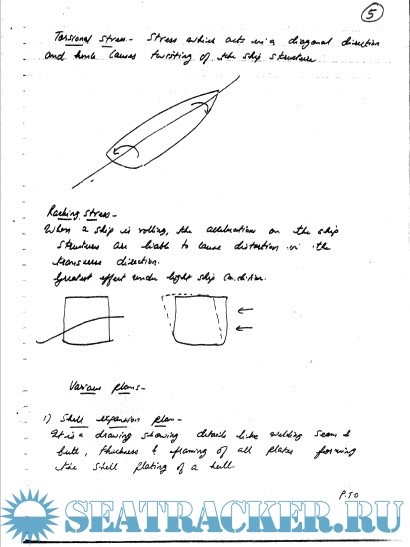 5
Torsional stress:- Stress which acts in a diagonal direction
and hence causes twisting of the ship structure.
Racking stress-
When a ship is rolling, the accelerations on the ship
structure are liable to cause distortion in the
transverse direction.
Greatest effect under light ship condition.
Various plans-
1) Shell expansion plan-
It is a drawing showing details like welding seam &
butt, thickness & framing of all plates forming
the shell plating of a hull
P.T.O
SEATRACKER.RU